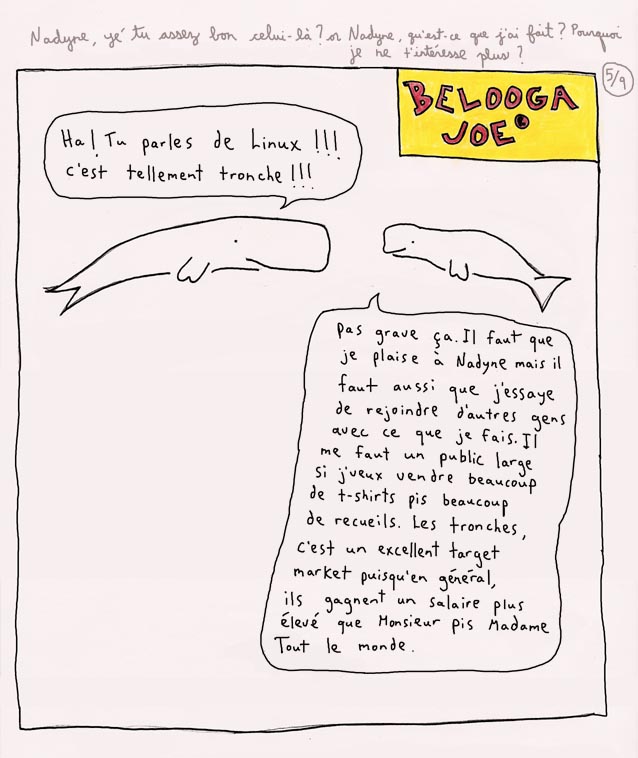 Nadyne, yé tu assez bon celui-là? or Nadyne, qu'est-ce que j'ai fait? Pourquoi
je ne t'intéresse plus?
5/9
BELOOGA
JOE
Ha! Tu parles de Linux!!!
c'est tellement tronche!!!
Pas grave ça. Il faut que
je plaise à Nadyne mais il
faut aussi que j'essaye
de rejoindre d'autres gens
avec ce que je fais. Il
me faut un public large
si j'veux vendre beaucoup
de t-shirts pis beaucoup
de recueils. Les tronches,
c'est un excellent target
market puisqu'en général,
ils gagnent un salaire plus
élevé que Monsieur pis Madame
Tout le monde.